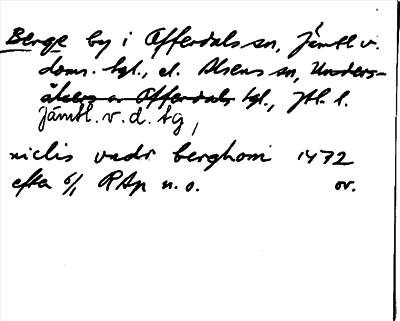 Berge by i Offerdals sn, Jämtl v.
doms. tgl., el. Alsens sn, Unders-
åkers o. Offerdals tgl., Jtl. l.
Jämtl. v. d. tg,
niclis vndr berghom 1472
efta 6/1 RAp n. o. or.